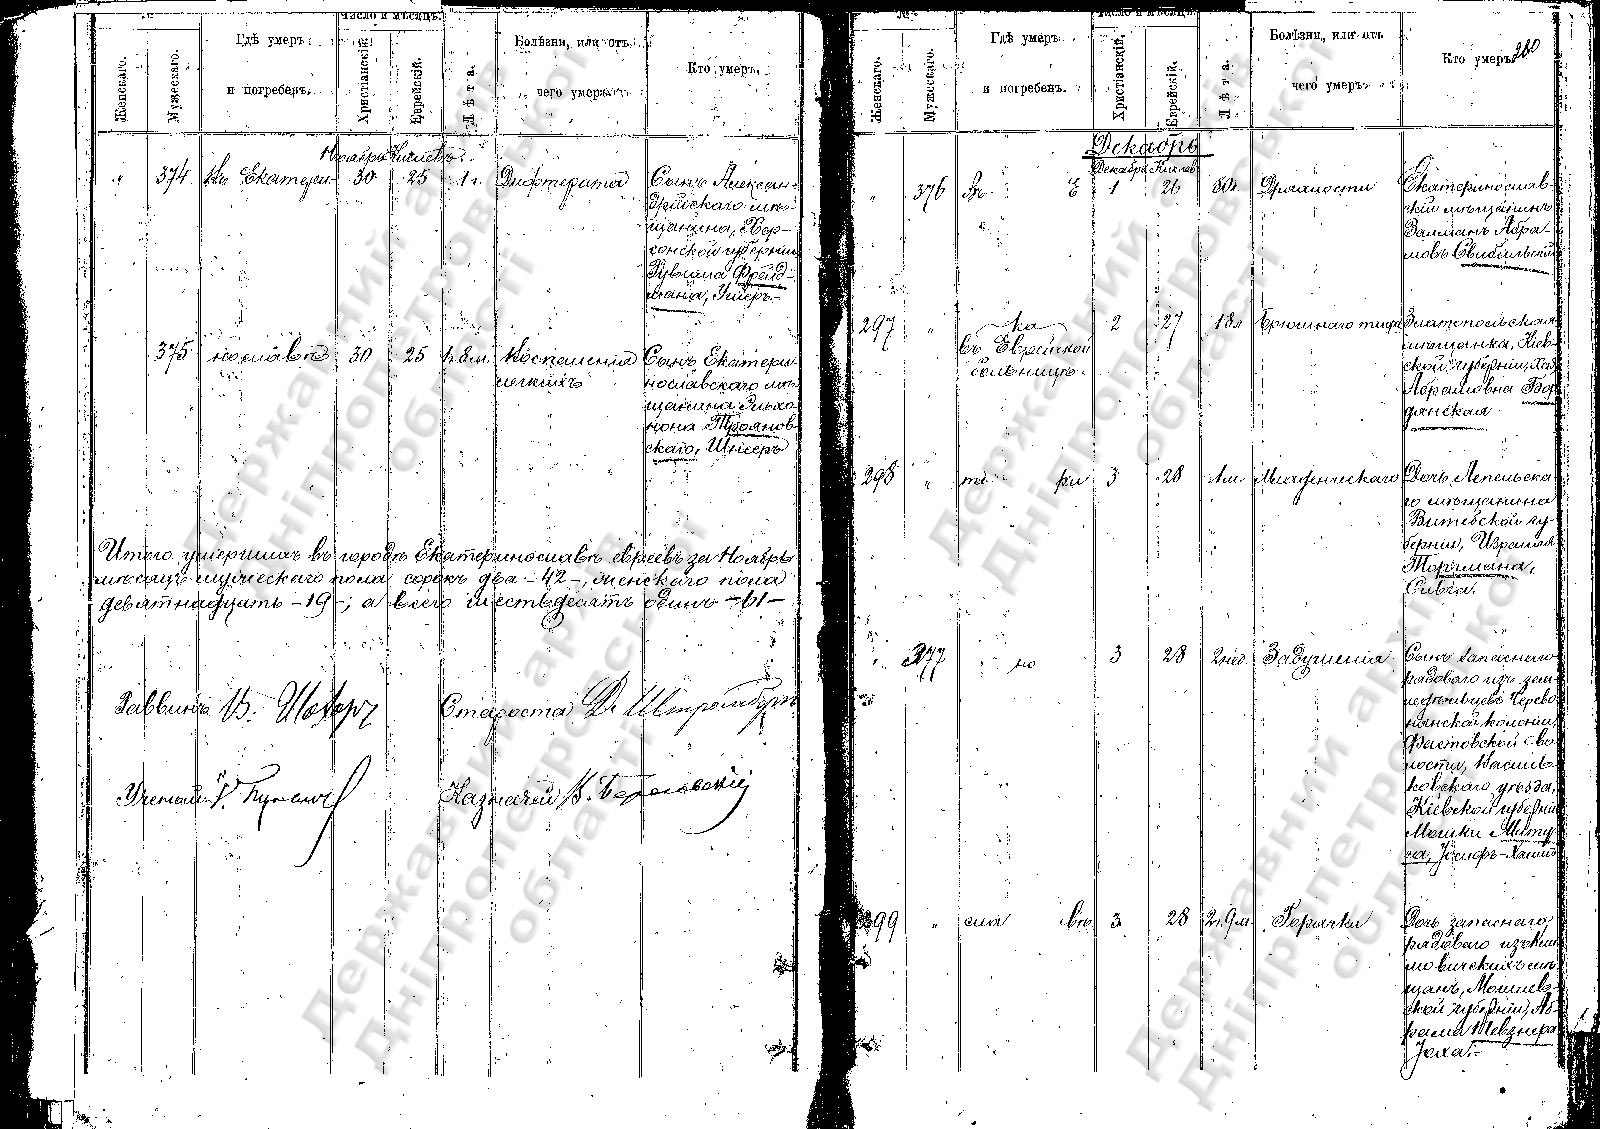 Число и мѣсяцъ.
Женскаго.
Мужескаго.
Гдѣ умеръ
и погребенъ.
Христіанскій.
Еврейскій.
Лѣта.
Болѣзни, или отъ
чего умеръ
Кто умеръ.
Ноябрь Кислевъ
" 374 Въ Екатери- 30 25 1 г. Дифтерита Сынъ Алексан-
дрійскаго мѣ-
щанина, Хер-
сонской губерніи
Рувина Фрейд-
мана, Ушеръ.-
375 нославѣ 30 25 1 г. 8 м. Воспаленія Сынъ Екатери
легкихъ нославскаго мѣ-
щанина Эльхо-
нона Трояновс-
скаго, Шнееръ
Итого умершихъ въ городѣ Екатеринославѣ евреевъ за Ноябрь
мѣсяцъ мужескаго пола сорокъ два -42-, женскаго пола
девятнадцать -19-; а всего шестьдесятъ одинъ -61-
Раввинъ В. Шахоръ
Староста Д. Штромбергъ
Ученый
Казначей
Число и мѣсяцъ.
Женскаго.
Мужескаго.
Гдѣ умеръ
и погребенъ.
Христіанскій.
Еврейскій.
Лѣта.
Болѣзни, или отъ
чего умеръ
Кто умеръ.
280
Декабрь
Декабрь Кислевъ
" 376 Въ Е 1 26 80 л. Дряхлости Екатеринослав-
скій мѣщанинъ
Залманъ Абра-
мовъ Свибильскій
297 " ка 2 27 18 л Брюшнаго тифа Златопольская
въ Еврейской мѣщанка, Кіев-
больницѣ. ской губерніи, Хая
Абрамовна Бог
данская
298 " те ри 3 28 1 м. Младенческаго Дочь Лепельска
го мѣщанина
Витебской гу-
берніи, Израиля
Торгмана,
Сивча.
" 377 но 3 28 2 нед. Задушенія Сынъ запаснаго
рядового изъ зем-
ледѣльцевъ Черво-
нянской колоніи,
Фастовской во-
лости, Василь-
ковскаго уѣзда,
Кіевской губерніи
Мошки Матус-
са, Іосифъ-Хаимъ
299 " сла вѣ 3 28 2 г. 9 м. Горячки Дочь запаснаго
рядового изъ Кли
мовичскихъ мѣ-
щанъ, Могилев-
ской губерніи, Аб-
рама Шевзнера
Гохат.-
Державний архів
Дніпропетровської
області